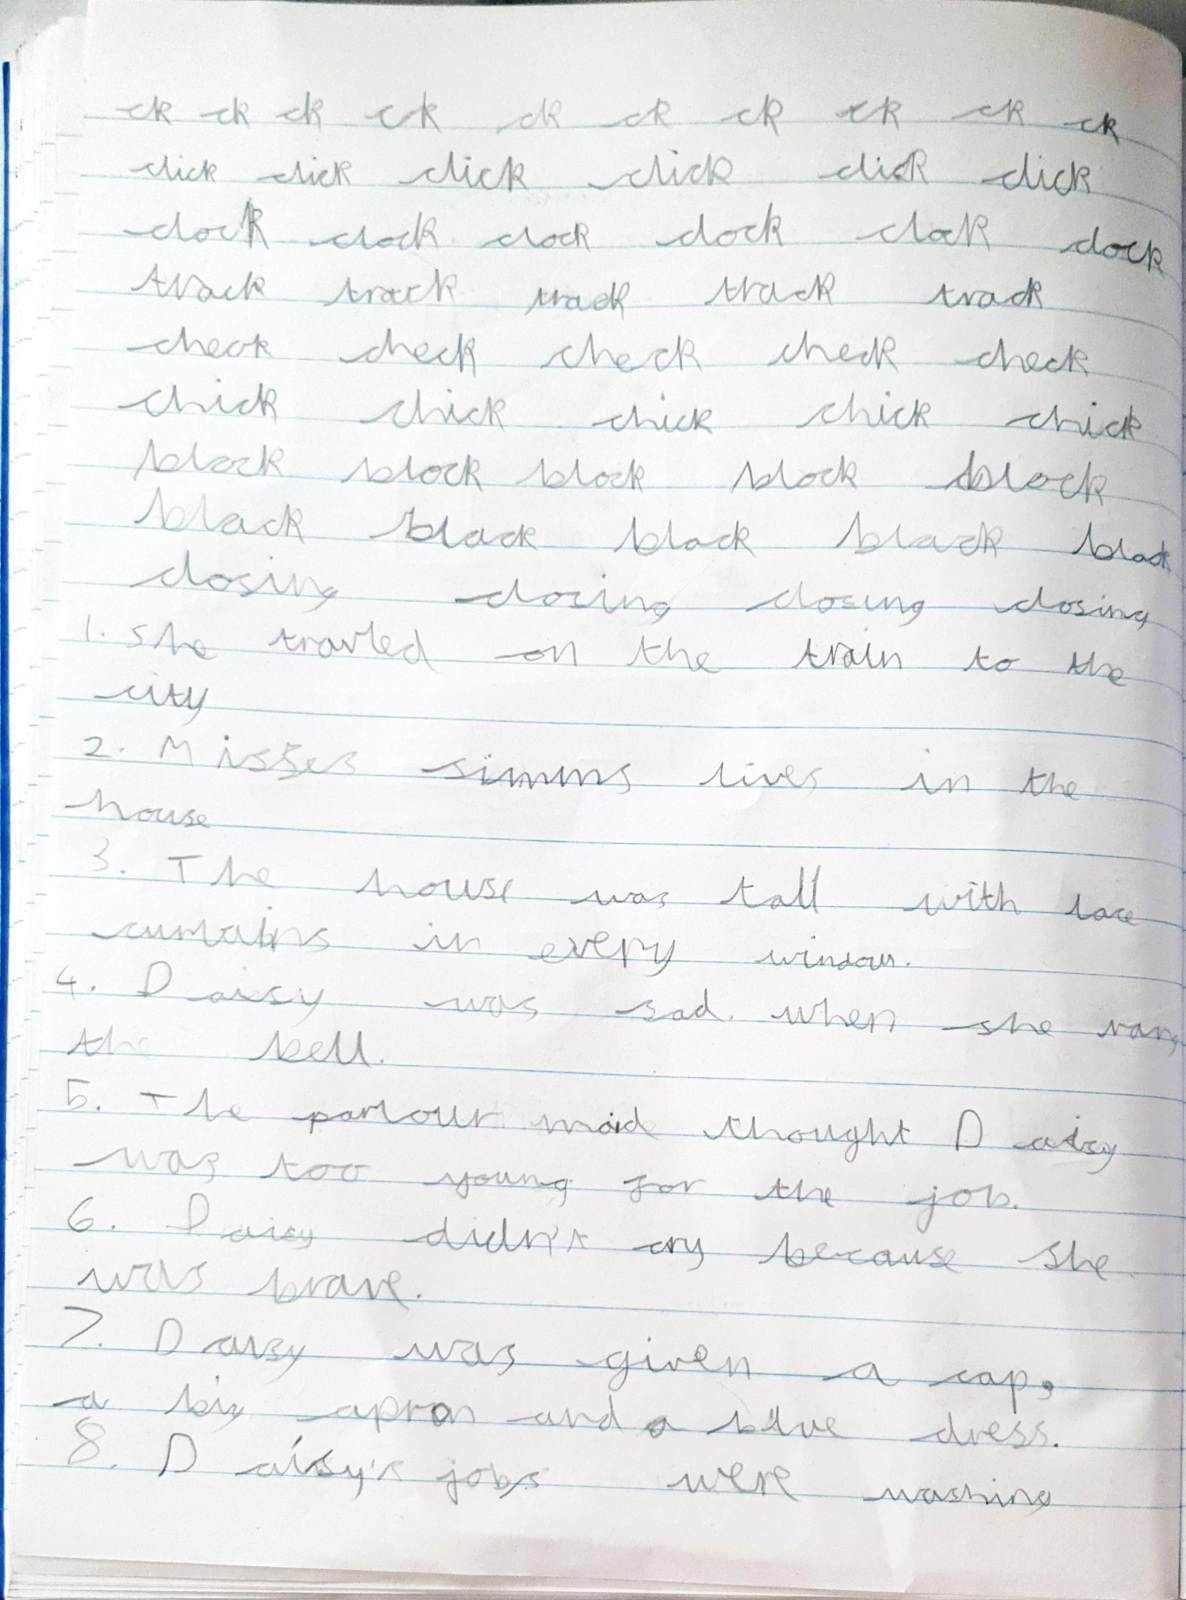 ck ck ck ck ck ck ck ck ck ck
click click click click click click
clock clock clock clock clock clock
track track track track track
check check check check check
chick chick chick chick chick
block block block block block
black black black black black
closing closing closing closing
1. She travled on the train to the
city
2. Misses simms lives in the
house
3. The house was tall with lace
curtains in every window.
4. Daisy was sad when she rang
the bell.
5. The parlour maid thought Daisy
was too young for the job.
6. Daisy didn't cry because she
was brave.
7. Daisy was given a cap,
a big apron and a blue dress.
8. Daisy's jobs were washing